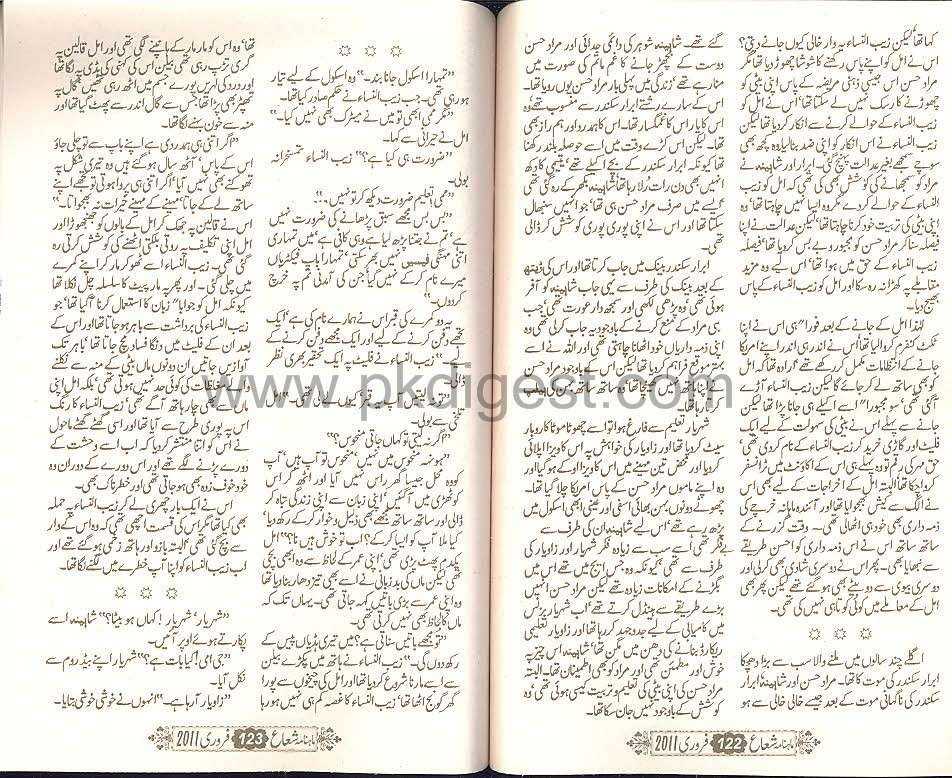 کہا تھا لیکن زیب النساء یہ وار خالی کیوں جانے دیتی؟
اس نے امل کو اپنے پاس رکھنے کا شوشا چھوڑا تھا مگر
مراد حسن اس جیسی ذہنی مریضہ کے پاس اپنی بیٹی کو
چھوڑنے کا رسک نہیں لے سکتا تھا‘ اس نے امل کو
زیب النساء کے حوالے کرنے سے انکار کر دیا تھا لیکن
زیب النساء نے اس انکار کو اپنی ضد بنا لیا۔ وہ کچھ بھی
سوچے سمجھے بغیر عدالت پہنچ گئی۔ ابرار اور شاہینہ نے
مراد کو سمجھانے کی کوشش بھی کی تھی کہ امل کو زیب
النساء کے حوالے کر دے مگر وہ ایسا نہیں چاہتا تھا‘ وہ
اپنی بیٹی کی تربیت خود کرنا چاہتا تھا‘ لیکن عدالت نے اپنا
فیصلہ سنا کر مراد حسن کو مجبور و بے بس کر دیا تھا‘ فیصلہ
زیب النساء کے حق میں ہوا تھا‘ اس لیے وہ مزید
مقابلے پہ کھڑا نہ رہ سکا اور امل کو زیب النساء کے پاس
بھیج دیا۔
لہٰذا امل کے جانے کے بعد فوراً ہی اس نے اپنا
ٹکٹ کنفرم کروا لیا تھا‘ اس نے اندر ہی اندر اپنے امریکا
جانے کے انتظامات مکمل کر رکھے تھے‘ ارادہ تھا کہ امل
کو بھی ساتھ لے کر جائے گا لیکن زیب النساء آڑے
آ گئی تھی‘ سو مجبوراً اسے اکیلے ہی جانا پڑا تھا لیکن
جانے سے پہلے اس نے بیٹی کی سہولت کے لیے ایک
فلیٹ اور گاڑی خرید کر زیب النساء کے نام کر دی تھی‘
حق مہر کی رقم تو وہ پہلے ہی اس کے اکاؤنٹ میں ٹرانسفر
کروا چکا تھا‘ البتہ امل کے اخراجات کے لیے بھی اس
نے الگ سے کیش بھجوایا تھا اور آئندہ ماہانہ خرچے کی
ذمہ داری بھی خود ہی اٹھا لی تھی۔ وقت گزرنے کے
ساتھ ساتھ اس نے اس ذمہ داری کو احسن طریقے
سے نبھایا بھی۔ پھر اس نے دوسری شادی بھی کر لی اور
دوسری بیوی سے دو بیٹے بھی ہو گئے تھے لیکن پھر بھی
امل کے معاملے میں کوئی کوتاہی نہیں کی تھی۔
اگلے چند سالوں میں ملنے والا سب سے بڑا دھچکا
ابرار سکندر کی موت کا تھا۔ مراد حسن اور شاہینہ ابرار
سکندر کی ناگہانی موت کے بعد جیسے خالی خالی سے ہو
گئے تھے۔ شاہینہ شوہر کی دائمی جدائی اور مراد حسن
دوست کے بچھڑ جانے کا غم ماتم کی صورت میں
منا رہے تھے‘ زندگی میں پہلی بار مراد حسن یوں رویا تھا۔
اس کے سارے رشتے ابرار سکندر سے منسوب تھے وہ
اس کا یار اس کا غمگسار تھا۔ اس کا ہمدرد اور ہم راز بھی
تھا۔ لیکن اس کڑے وقت میں اسے حوصلہ بلند رکھنا
تھا کیونکہ ابرار سکندر کے بچے اکیلے تھے‘ یتیمی کا دکھ
انہیں بھی دن رات رلا رہا تھا‘ شاہینہ بکھر کے رہ گئی تھی
‘ ایسے میں صرف مراد حسن ہی تھا‘ جو انہیں سنبھال
سکتا تھا اور اس نے اپنی پوری پوری کوشش کر ڈالی
تھی۔
ابرار سکندر بینک میں جاب کرتا تھا اور اس کی ڈیتھ
کے بعد بینک کی طرف سے یہی جاب شاہینہ کو آفر
ہوئی تھی‘ وہ پڑھی لکھی اور سمجھ دار عورت تھی‘ جب
ہی مراد کے منع کرنے کے باوجود یہ جاب کر لی تھی وہ
اپنی ذمہ داریاں خود اٹھانا چاہتی تھی اور اللہ نے اسے
بہتر موقع فراہم
کر رہا تھا۔
شہریار تعلیم سے فارغ ہوا تو اسے چھوٹا موٹا کاروبار
سیٹ کروا دیا تھا اور زاویار کی خواہش پہ اس کا ویزا اپلائی
کر دیا اور محض تین مہینے میں اس کا ویزا اوکے ہو گیا اور
وہ اپنے ماموں مراد حسن کے پاس امریکا چلا گیا تھا۔
چھوٹے دونوں بہن بھائی اسنی اور عینی ابھی اسکول میں
پڑھ رہے تھے‘ اس لیے شاہینہ ان کی طرف سے
بے فکر تھی‘ اسے سب سے زیادہ فکر شہریار اور زاویار کی
طرف سے تھی‘ کیونکہ وہ جس ایج میں تھے اس میں
بگڑنے کے امکانات زیادہ تھے لیکن مراد حسن انہیں
بڑے طریقے سے ہینڈل کرتے تھے‘ اب شہریار بزنس
میں کامیابی کے لیے جدوجہد کر رہا تھا اور زاویار تعلیمی
ریکارڈ بنانے کی دھن میں مگن تھا‘ شاہینہ اس چیز پہ
خوش اور مطمئن تھی اور مراد کو بھی اطمینان تھا۔ البتہ
مراد حسن کی اپنی بیٹی کی تعلیم و تربیت کیسی ہوئی تھی‘ وہ
کوشش کے باوجود نہیں جان سکا تھا۔
ماہنامہ شعاع 122 فروری 2011
”تمہارا اسکول جانا بند۔“ وہ اسکول کے لیے تیار
ہو رہی تھی۔ جب زیب النساء نے حکم صادر کیا تھا۔
”مگر ممی ابھی تو میں نے میٹرک بھی نہیں کیا۔“
امل نے حیرانی سے کہا۔
”ضرورت ہی کیا ہے؟“ زیب النساء تمسخرانہ
بولی۔
”ممی! تعلیم ضرورت دیکھ کر تو نہیں۔۔“
”بس بس مجھے سبق پڑھانے کی ضرورت نہیں
ہے‘ تم نے جتنا پڑھ لیا ہے وہی کافی ہے‘ میں تمہاری
اتنی مہنگی فیسیں نہیں بھر سکتی‘ تمہارا باپ فیکٹریاں
میرے نام کر کے نہیں گیا‘ جن کی آمدنی تم پہ خرچ
کر دوں۔“
یہ دو کمرے کی قبر اس نے ہمارے نام کی ہے‘ ایک
تجھے دفن کرنے کے لیے اور ایک مجھے دفن کرنے کے
لیے۔“ زیب النساء نے فلیٹ پہ ایک تحقیر بھری نظر
ڈالی۔
”تو نہ لیتیں آپ یہ قبر‘ کیوں لے لی تھی۔“ امل
تلخی سے بولی۔
”اگر نہ لیتی تو کہاں جاتی منحوس؟“
”ہونہہ‘ منحوس میں نہیں‘ منحوس تو آپ ہیں‘ آپ
کو وہ محل جیسا گھر راس نہیں آیا اور اٹھ کر اس
کوٹھڑی میں آ گئیں‘ اپنی زبان سے اپنی زندگی تباہ کر
ڈالی اور ساتھ ساتھ مجھے بھی ذلیل و خوار کر کے رکھ دیا‘
کیا ملا آپ کو ایسا کر کے؟ اب تو خوش ہیں نا؟“ امل
یکدم پھٹ پڑی تھی‘ اپنی عمر کے لحاظ سے وہ ابھی بچی
تھی لیکن ماں کی بدزبانی نے اسے بھی تیز دھار بنا دیا تھا
وہ اپنی عمر سے بڑی باتیں کہہ جاتی تھی۔ یہاں تک کہ
ماں کا لحاظ بھی نہیں کرتی تھی۔
”تو مجھے باتیں سناتی ہے؟ میں تیری ہڈیاں پیس کے
رکھ دوں گی۔“ زیب النساء نے ہاتھ میں پکڑے بیلن
سے اسے مارنا شروع کر دیا تھا اور امل کی چیخوں سے پورا
گھر گونج اٹھا تھا‘ زیب النساء کا غصہ کم ہی نہیں ہو رہا
تھا‘ وہ اس کو مار مار کے ہانپنے لگی تھی اور امل قالین پہ
گری تڑپ رہی تھی بیلن اس کی کہنی کی ہڈی پہ لگا تھا
اور درد کی لہریں پورے جسم میں اٹھ رہی تھیں‘ گال پہ
تھپڑ بھی پڑا تھا‘ جس سے گال اندر سے پھٹ گیا تھا اور
منہ سے خون بہنے لگا تھا۔
”اگر اتنی ہی ہمدردی ہے اپنے باپ سے تو چلی جاؤ
اس کے پاس‘ آٹھ سال ہو گئے ہیں وہ تیری شکل پہ
تھوکنے بھی نہیں آیا‘ اگر اتنی ہی پروا ہوتی تو تجھے اپنے
ساتھ لے کے جاتا‘ مہینے کے مہینے خیرات نہ بھجواتا۔“
اس نے قالین پہ جھک کر امل کے بالوں کو جھنجھوڑا اور
امل اپنی تکلیف پہ روتی بلکتی اٹھنے کی کوشش کرتی رہ
گئی تھی۔ زیب النساء اسے ٹھوکر مار کر اپنے کمرے
میں چلی گئی۔ اور پھر یہ مار پیٹ کا سلسلہ چل نکلا تھا
کیونکہ امل کو جواباً زبان کا استعمال کرنا آ گیا تھا‘ جو
زیب النساء کی برداشت سے باہر ہو جاتا تھا اور اس کے
بعد ان کے فلیٹ میں دنگا فساد مچ جاتا تھا‘ باہر تک
آوازیں جاتیں ان دونوں ماں بیٹی کے منہ سے نکلنے
والے مغلظات کی کوئی حد نہیں ہوتی تھی‘ بلکہ امل اپنی
ماں سے بھی چار ہاتھ آگے تھی‘ زیب النساء کا رنگ
اس پہ پوری طرح سے آیا تھا اور اسی گھٹے گھٹے ماحول
نے اس کو اتنا منتشر کر دیا تھا کہ اب اسے دہشت کے
دورے پڑنے لگے تھے اور اس دورے کے دوران وہ
خود خوف زدہ بھی ہو جاتی تھی اور خطرناک بھی۔
اس نے ایک بار چھری لے کر زیب النساء پہ حملہ
بھی کیا تھا مگر اس کی قسمت اچھی تھی کہ وہ اس کے وار
سے بچ گئی تھی‘ البتہ بازو اور ہاتھ زخمی ہو گئے تھے اور
اب زیب النساء کو اپنا آپ خطرے میں لگنے لگا تھا۔
”شہریار‘ شہریار! کہاں ہو بیٹا؟“ شاہینہ اسے
پکارتے ہوئے اوپر آئیں۔
”جی امی! کیا بات ہے؟“ شہریار اپنے بیڈ روم سے
نکل آیا۔
”زاویار آ رہا ہے۔“ انہوں نے خوشی خوشی بتایا۔
ماہنامہ شعاع 123 فروری 2011
www.pkdigest.com